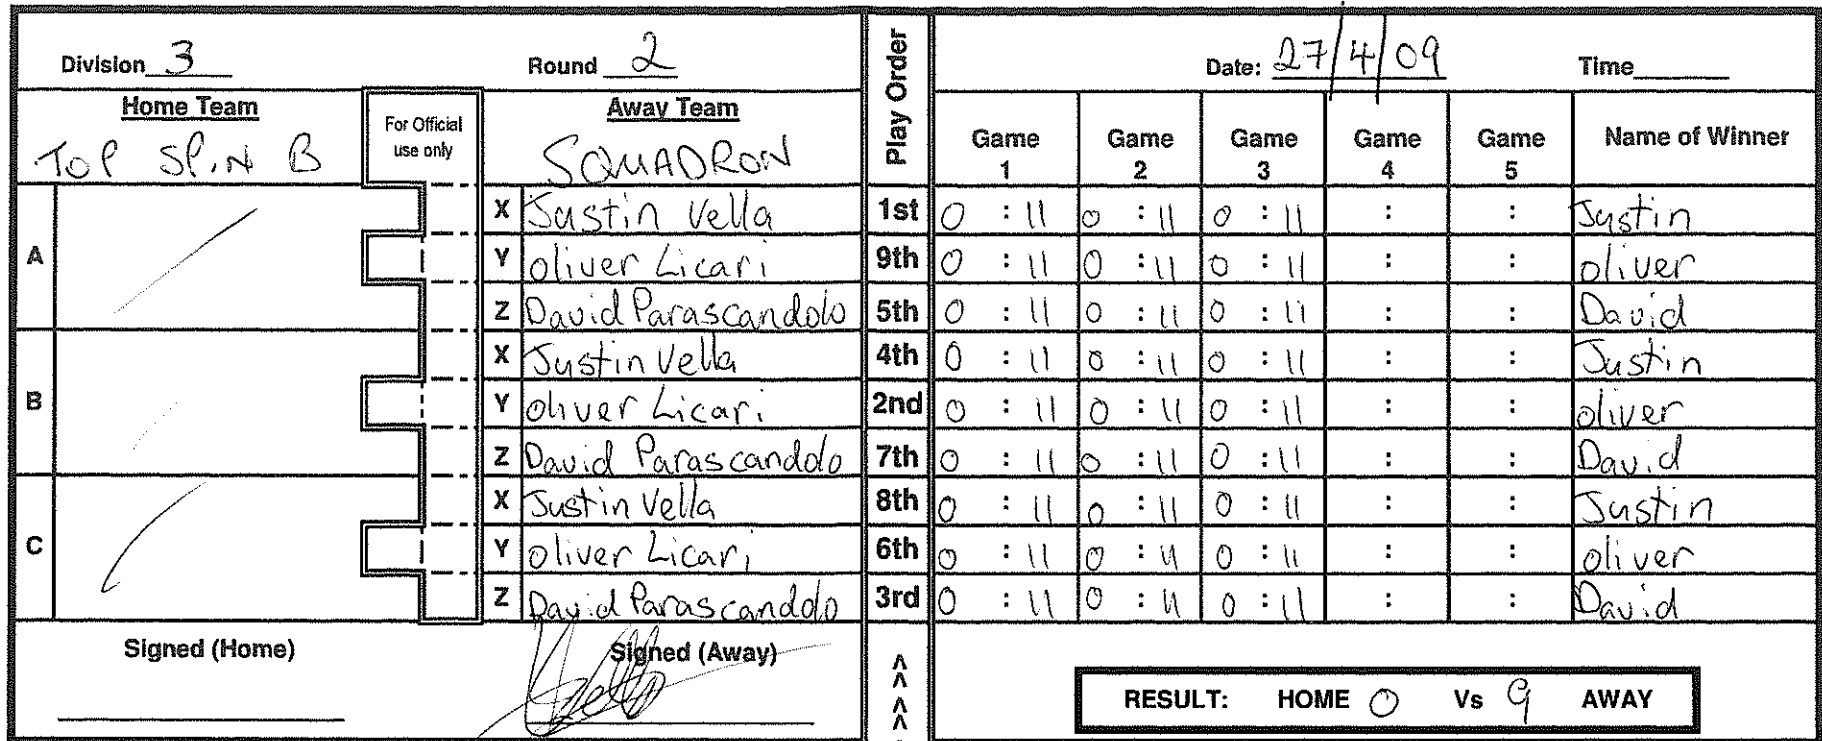 Division 3 Round 2 Play Order Date: 27/4/09 Time
Home Team For Official use only Away Team Game 1 Game 2 Game 3 Game 4 Game 5 Name of Winner
TOP SPIN B SQUADRON
A X Justin Vella 1st 0 : 11 0 : 11 0 : 11 : : Justin
Y oliver Licari 9th 0 : 11 0 : 11 0 : 11 : : oliver
Z David Parascandolo 5th 0 : 11 0 : 11 0 : 11 : : David
B X Justin Vella 4th 0 : 11 0 : 11 0 : 11 : : Justin
Y oliver Licari 2nd 0 : 11 0 : 11 0 : 11 : : oliver
Z David Parascandolo 7th 0 : 11 0 : 11 0 : 11 : : David
C X Justin Vella 8th 0 : 11 0 : 11 0 : 11 : : Justin
Y oliver Licari 6th 0 : 11 0 : 11 0 : 11 : : oliver
Z David Parascandolo 3rd 0 : 11 0 : 11 0 : 11 : : David
Signed (Home) Signed (Away) < < < <
RESULT: HOME 0 Vs 9 AWAY